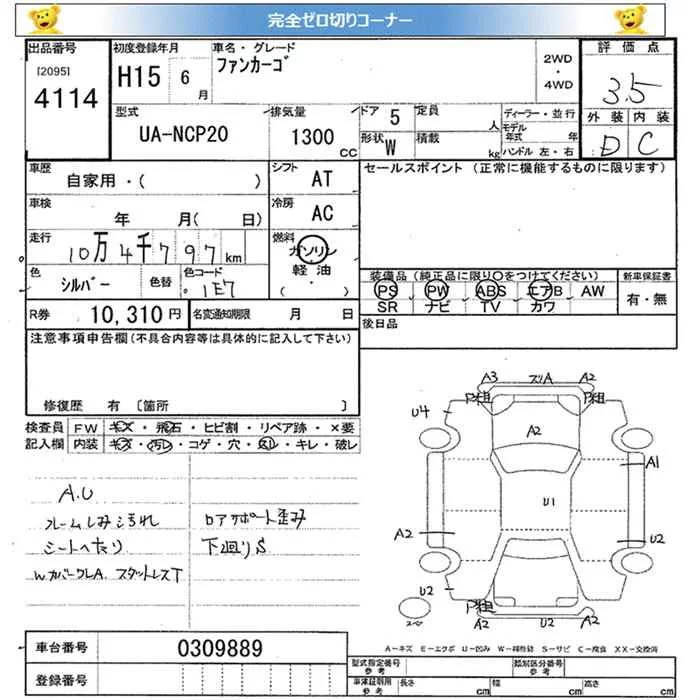 完全ゼロ切りコーナー
出品番号
[2095]
4114
初度登録年月
H15 6月
車名・グレード
ファンカーゴ
2WD
・
4WD
評価点
3.5
外装 内装
D C
型式
UA-NCP20
排気量
1300
CC
ドア 5
形状 W
定員
人
積載
kg
ディーラー・並行
モデル年式 年
ハンドル 左・右
車歴
自家用・( )
シフト
AT
セールスポイント (正常に機能するものに限ります)
車検
年 月( 日)
冷房
AC
走行
10万4千797km
燃料
ガソリン
軽油
( )
色
シルバー
色替
色コード
1E7
装備品(純正品に限り○をつけてください)
PS PW ABS エアB AW
SR ナビ TV カワ
新車保証書
有・無
R券 10,310円
名変通知期限 月 日
後日品
注意事項申告欄(不具合内容等は具体的に記入して下さい)
修復歴 有 〔箇所 〕
検査員 FW キズ・飛石・ヒビ割・リペア跡・×要
記入欄 内装 キズ・汚レ・コゲ・穴・スレ・キレ・破レ
A.U
フレームしみ汚れ
シートへたり
WカバーワレA. スタットレスT
ロアサポート歪み
下廻りS
A3 ズリA A2
P組 P組
U4
A2
A1
U1
A2
U2
U2
P組
スペ
A2 U2 A2
A-キズ E-エクボ U-凹み W-補修跡 S-サビ C-腐食 XX-交換済
車台番号
0309889
登録番号
型式指定番号
参考
類別区分番号
参考
車庫証明用
参考
長さ cm 幅 cm 高さ cm